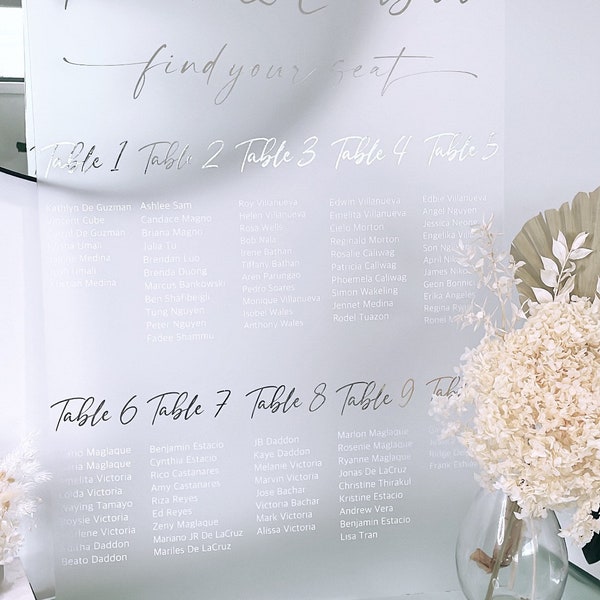 find your seat
Table 1
Kathlyn De Guzman
Vincent Cube
De Guzman
Limali
Medina
Limali
Medina
Table 2
Ashlee Sam
Candace Magno
Briana Magno
Julia Tu
Brendan Luo
Brenda Duong
Marcus Bankowski
Ben Shaf beigi
Tung Nguyen
Peter Nguyen
Fadee Shammu
Table 3
Roy Villanueva
Helen Villanueva
Rosa Wells
Bob Wells
Irene Bathan
Tiffany Bathan
Aren Patungao
Pedro Soares
Monique Villanueva
Isobel Wales
Anthony Wales
Table 4
Edwin Villanueva
Emelita Villanueva
Cielo Morton
Reginald Morton
Rosalie Caliwag
Patricia Caliwag
Phoemela Caliwag
Simon Wakeling
Jennet Medina
Rodel Tuazon
Table 5
Eddie Villanueva
Angel Nguyen
Jessica
Engelika
Son
April
James
Geon Bonnici
Erika Angeles
Regina
Table 6
Maglaque
Maglaque
Victoria
Victoria
Tamayo
Victoria
Victoria
Daddon
Beato Daddon
Table 7
Benjamin Estacio
Cynthia Estacio
Rico Castanares
Amy Castanares
Riza Reyes
Ed Reyes
Zeny Maglaque
Mariano JR De LaCruz
Mariles De LaCruz
Table 8
JB Daddon
Kaye Daddon
Melanie Victoria
Marvin Victoria
Jose Bachar
Victoria Bachar
Mark Victoria
Alissa Victoria
Table 9
Marlon Maglaque
Rosenie Maglaque
Ryanne Maglaque
Jonas De LaCruz
Christine Thirakul
Kristine Estacio
Andrew Vera
Benjamin Estacio
Lisa Tran
Frank